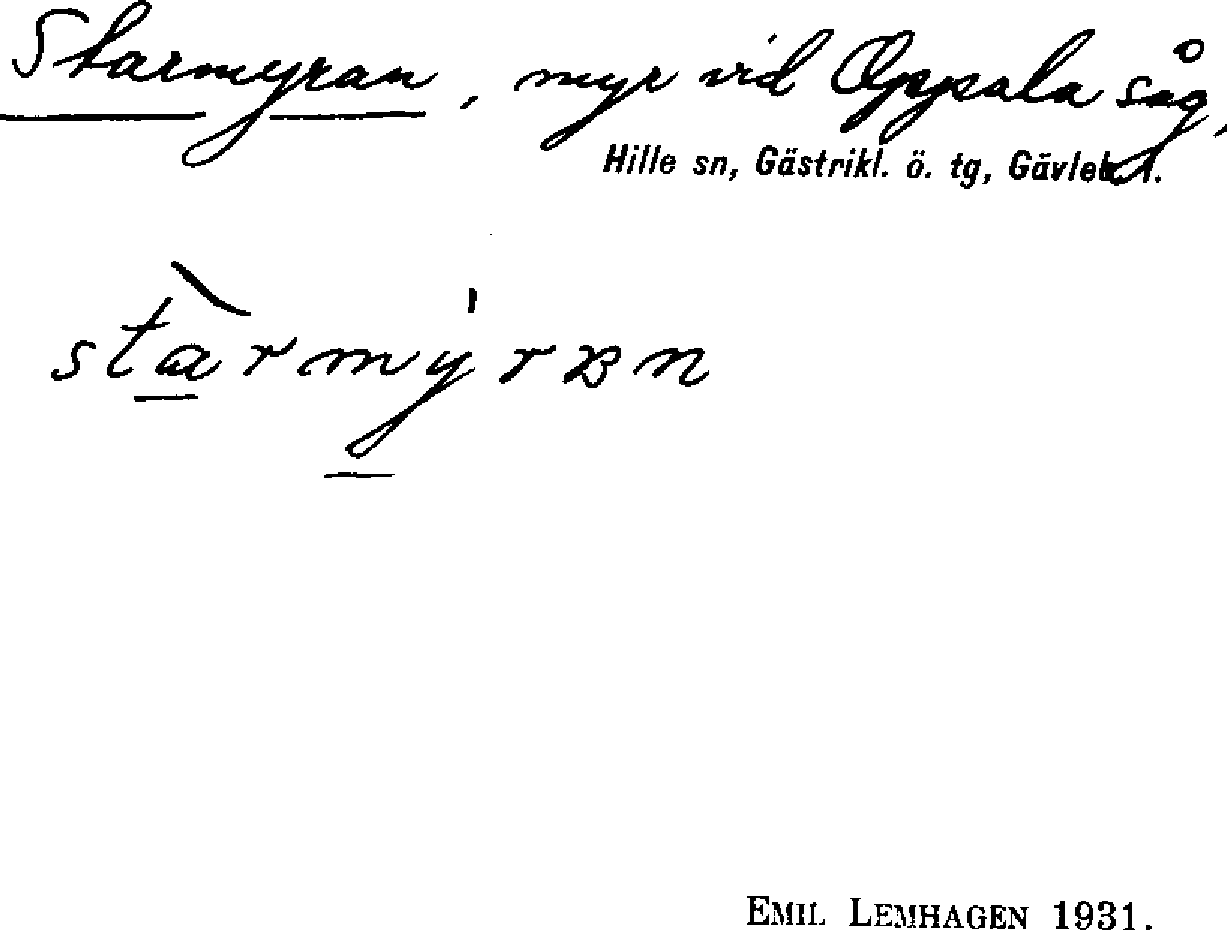 Starmyran, myr vid Oppala såg,
Hille sn, Gästrikl. ö. tg, Gävleb. l.
EMIL LEMHAGEN 1931.